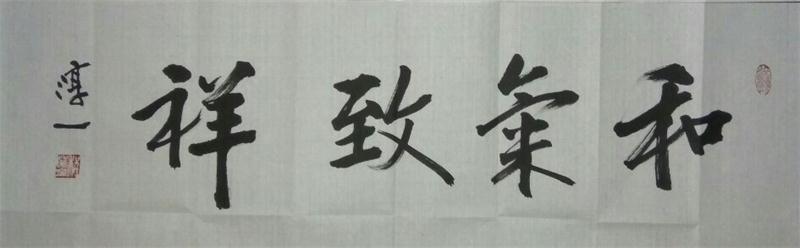 和氣致祥
淳一